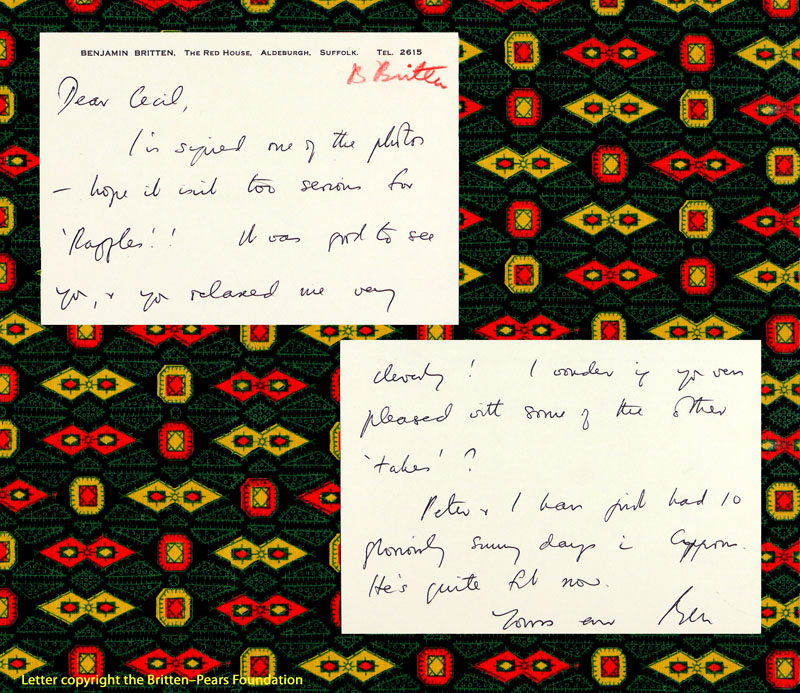 BENJAMIN BRITTEN, THE RED HOUSE, ALDEBURGH, SUFFOLK. TEL. 2615
B Britten
Dear Cecil,
I've signed one of the photos
– hope it isn't too serious for
'Raffles'! It was good to see
you, & you relaxed me very
cleverly! I wonder if you were
pleased with some of the other
'takes'?
Peter & I have just had 10
gloriously sunny days in Cyprus.
He's quite fit now.
Yours ever Ben
Letter copyright the Britten–Pears Foundation